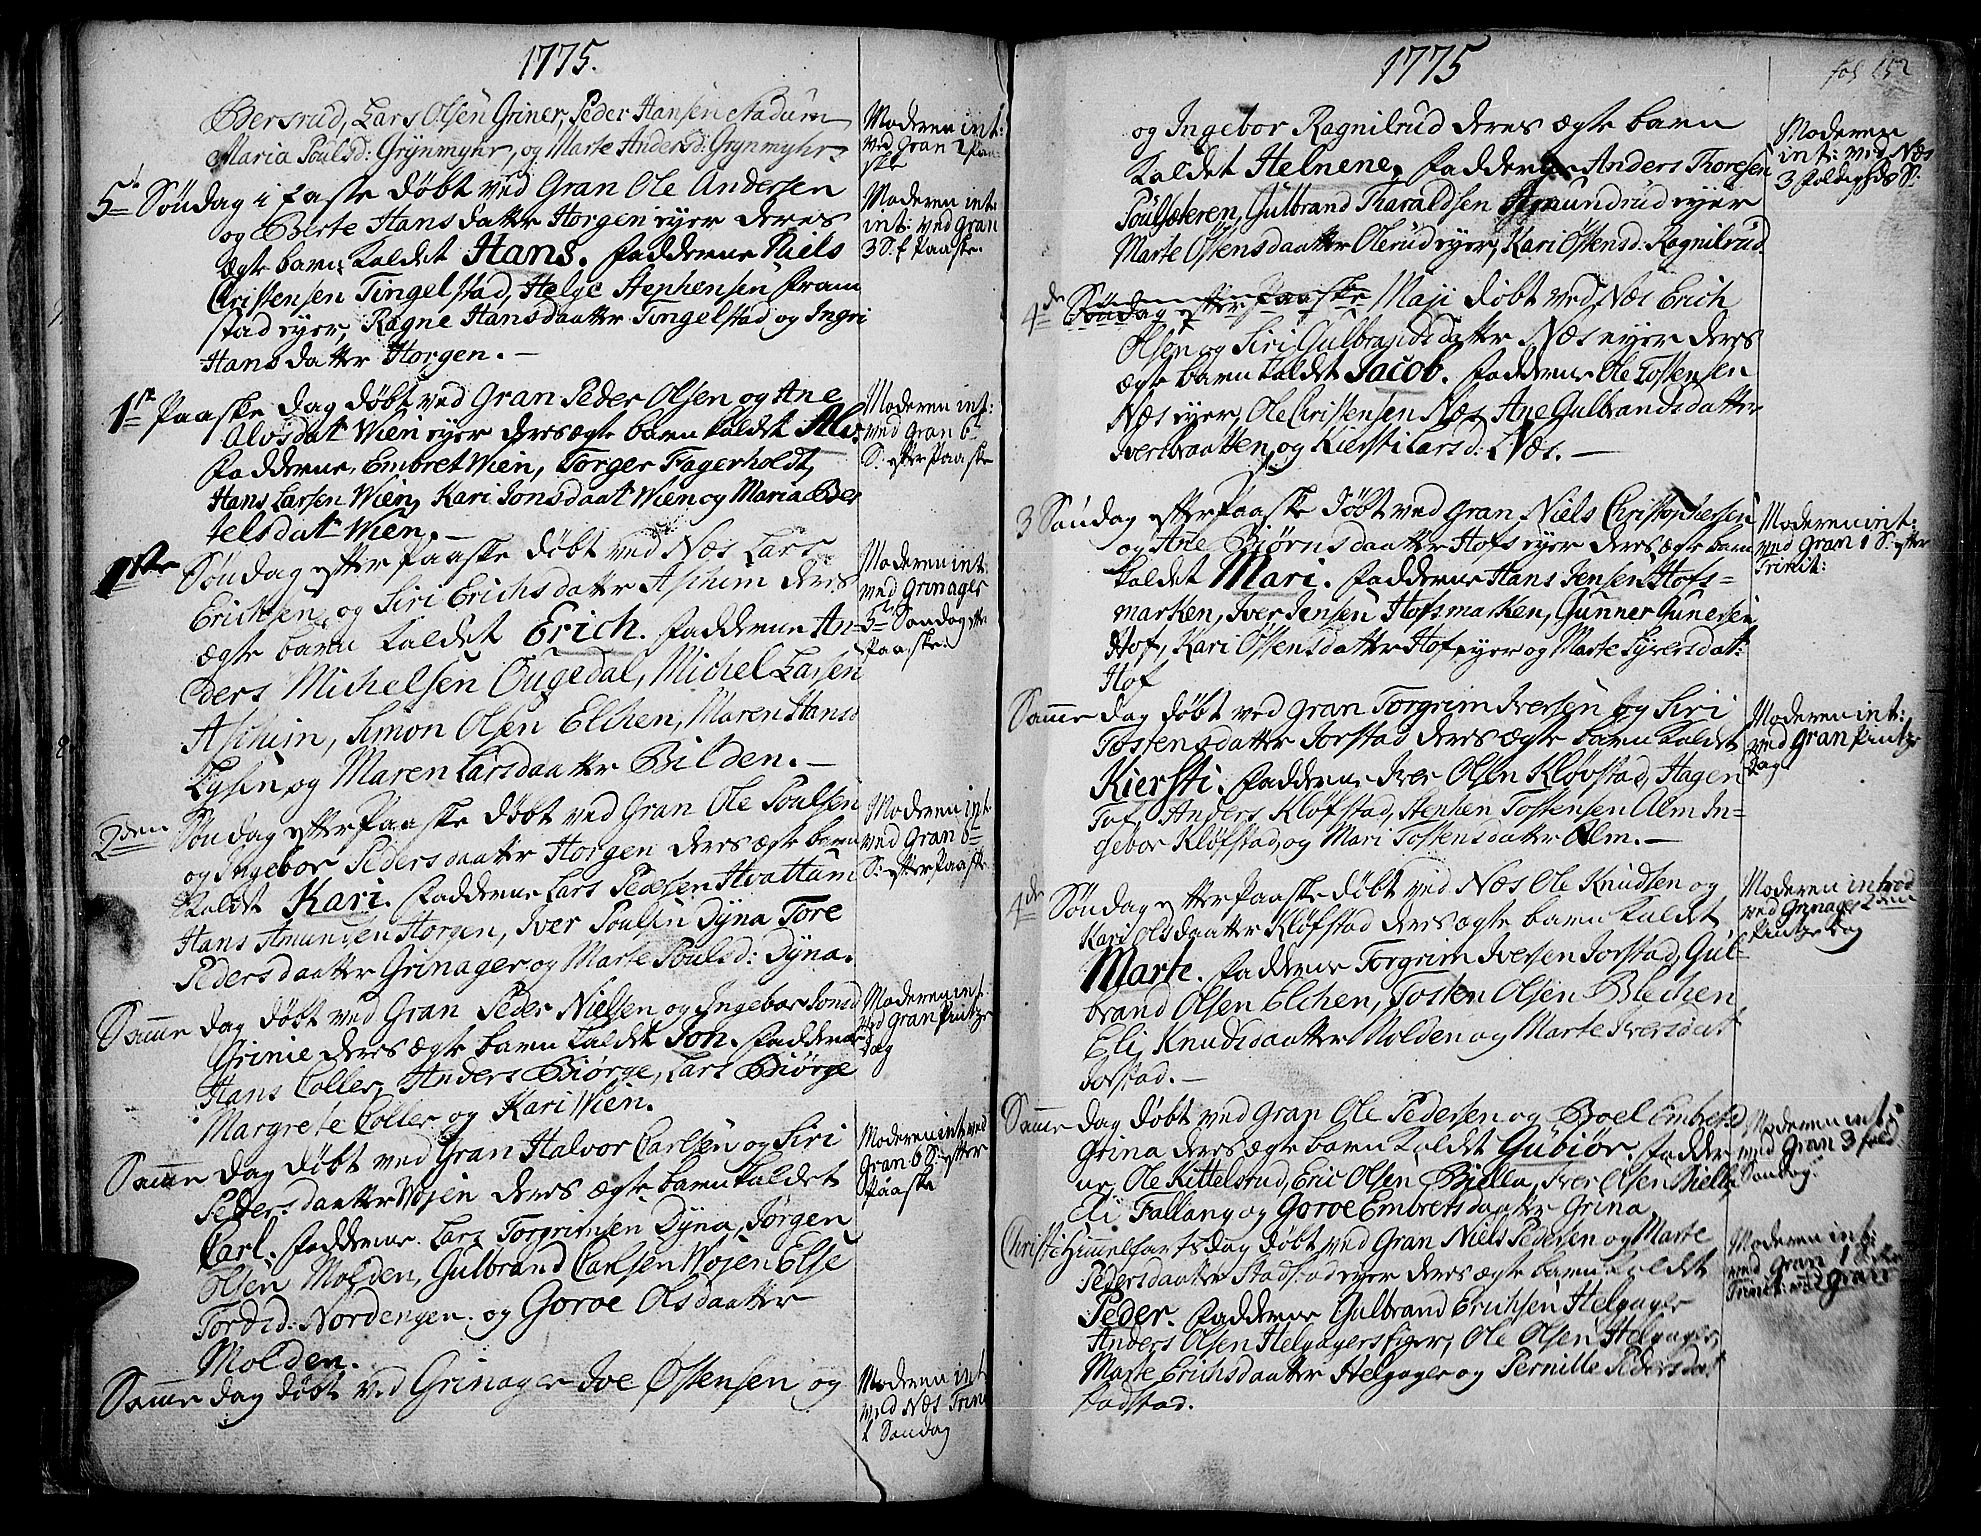 1775.
Bersrud, Lars Olsen Griner, Peder Hansen Nadum
Maria Poulsd: Grynmyhr, og Marte Andersd: Grynmyhr.
Moderen int:
ved Gran 2 Paa-
ske
5t Søndag i faste døbt ved Gran Ole Andersen
og Berte Hansdatter Horgen eyer deres
ægte barn kaldet Hans. Fadderne Niels
Christensen Tingelstad, Helge Stephensen Fram
stad eyer, Ragne Hansdaatter Tingelstad og Ingri
Hansdatter Horgen. -
Moderen int:
int: ved Gran
3 S. f Paaske.
1st Paaske dag døbt ved Gran Peder Olsen og Ane
Alvsdat Wien eyer deres ægte barn kaldet Alv.
Fadderne Embret Wien, Torger Fagerholdt,
Hans Larsen Wien, Kari Jonsdaatr Wien og Maria Ber
telsdatr Wien. -
Moderen int:
ved Gran 6te
S: efter Paaske
1ste Søndag efter Paaske døbt ved Næs Lars
Erichsen og Siri Erichsdatter Aschim deres
ægte barn kaldet Erich. Fadderne An-
ders Michelsen Ougedal, Michel Larsen
Aschim, Simon Olsen Elchen, Maren Hansd
Lysen og Maren Larsdaatter Bilden. -
Moderen int:
ved Grinager
5te Søndag eft
Paaske.
2den Søndag efter Paaske døbt ved Gran Ole Poulsen
og Ingebor Pedersdaatter Horgen deres ægte barn
kaldet Kari. Fadderne Lars Pedersen Hvattum
Hans Amundsen Horgen, Iver Poulsen Dyna Tore
Pedersdaatter Grinager og Marte Poulsd: Dyna.
Moderen int
ved Gran 6te
S: efter Paaske
Samme dag døbt ved Gran Peder Nielsen og Ingebor Jonsd
Grinie deres ægte barn kaldet Joh. Fadderne
Hans Coller, Anders Biørge, Lars Biørge
Margrete Coller og Kari Wien.
Moderen int
ved Gran Pintze
dag
Samme dag døbt ved Gran Halvor Carlsen og Siri
Pedersdaatter Wøjen deres ægte barn kaldet
Carl. Fadderne Lars Torgrimsen Dyna, Jørgen
Olsen Molden, Gulbrand Carlsen Wøjen Else
Tordsd: Nordengen og Goroe Olsdaatter
Molden.
Moderen int ved
Gran 6 S: efter
Paaske
Samme dag døbt ved Grinager Ive Østensen og
Moderen int
ved Næs Trini
1 Søndag
1775
fol 152
og Ingebor Ragnilrud deres ægte barn
kaldet Helnene, Fadderne Anders Thoresen
Poulsæteren, Gulbrand Tharaldsen Amundrud eyer
Marte Østensdaatter Olerud eyer, Kari Østensd. Ragnilrud.
Moderen
int: ved Næs
3 foldigheds S:
4de Søndag efter Paaske / Maji døbt ved Næs Erich
Olsen og Siri Gulbrandsdatter Næs eyer deres
ægte barn kaldet Jacob. Fadderne Ole Tostensen
Næs eyer, Ole Christensen Næs, Ane Gulbrandsdatter
og Kiersti Larsd: Næs. -
3 Søndag efter Paaske døbt ved Gran Niels Christophersen
og Ane Biørnsdaatter Hofs eyer deres ægte barn
kaldet Mari. Fadderne Hans Jensen Hofs-
marken, Iver Jensen Hofsmarken, Gunner Gunersen
Hof, Kari Østensdatter Hof, eyer og Marte Syversdat:
Hof
Moderen int:
ved Gran 1 S: efter
Trinit:
Samme dag døbt ved Gran Torgrim Iversen og Siri
Tostensdatter Jorstad deres ægte barn kaldet
Kiersti. Fadderne Iver Olsen Kløvstad, Hagen
Tof, Anders Kløfstad, Stephen Tostensen Alm In-
gebor Kløfstad, og Mari Tostensdatter Alm. -
Moderen int:
ved Gran Pintze
dag
4de Søndag efter Paaske døbt ved Næs Ole Knudsen og
Kari Olsdaatter Kløfstad deres ægte barn kaldet
Marte. Fadderne Torgrim Iversen Jorstad, Gul-
brand Olsen Elchen, Tosten Olsen Blechen
Eli Knudsdaatter Molden og Marte Iversdat
Jorstad. -
Moderen introd
ved Grinager 2den
Pintze dag
Samme dag døbt ved Gran Ole Pedersen og Boel Embretsd
Grina deres ægte barn kaldet Gubiør. Fadder
ne Ole Kittelsrud, Eric Olsen Bjella, Iver Olsen Bielle
Eli Fallang og Goroe Embretsdaatter Grina
Moderen int:
ved Gran 3 fold
Søndag.
Christi Himmelfarts dag døbt ved Gran Niels Pedersen og Marte
Pedersdaatter Stadstad eyer deres ægte barn kaldet
Peder. Fadderne Gulbrand Erichsen Helgager
Anders Olsen Helgagerseyer, Ole Olsen Helgager,
Marte Erichsdaatter Helgager og Pernille Pedersdat
Stadstad.
Moderen int:
ved Gran 1 S: efter
Trinit: ved Gran